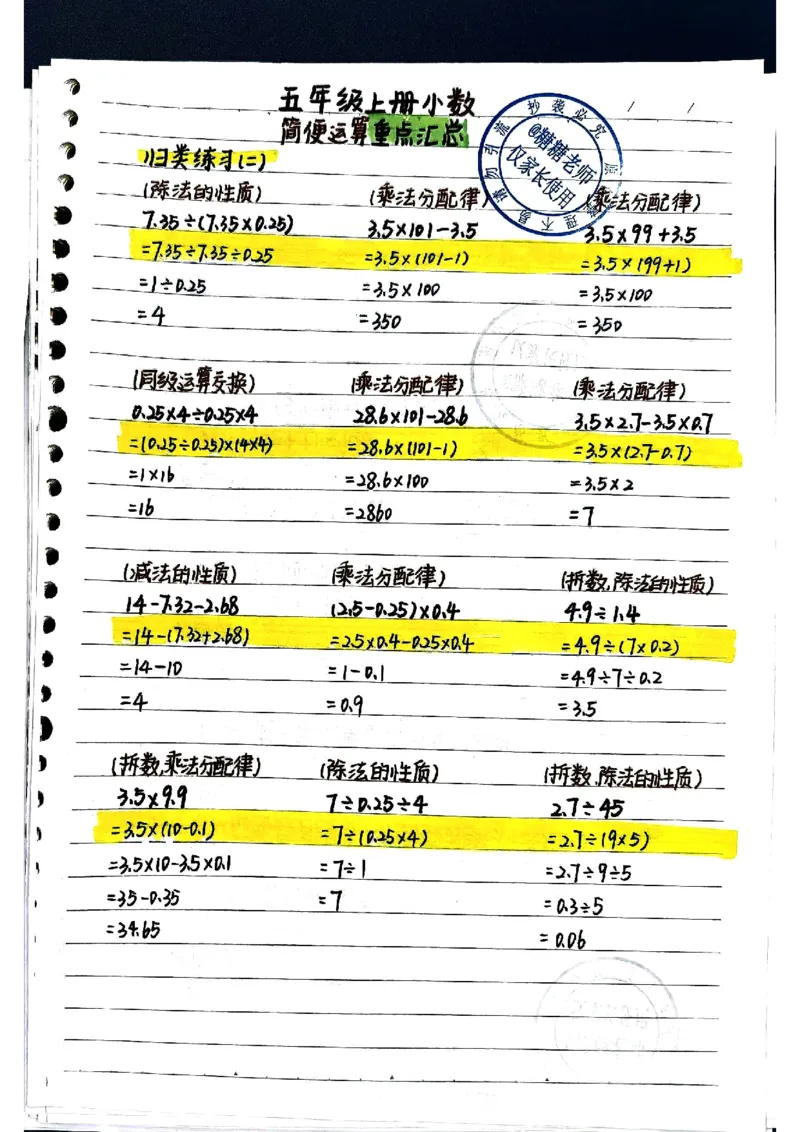 五年级上册小数
简便运算重点汇总
抄袭必究
@糖糖老师
仅家长使用
归类练习(二)
(除法的性质) (乘法分配律) (乘法分配律)
7.35÷(7.35×0.25) 3.5×101-3.5 3.5×99+3.5
=7.35÷7.35÷0.25 =3.5×(101-1) =3.5×(99+1)
=1÷0.25 =3.5×100 =3.5×100
=4 =350 =350
(同级运算交换) (乘法分配律) (乘法分配律)
0.25×4÷0.25×4 28.6×101-28.6 3.5×2.7-3.5×0.7
=(0.25÷0.25)×(4×4) =28.6×(101-1) =3.5×(2.7-0.7)
=1×16 =28.6×100 =3.5×2
=16 =2860 =7
(减法的性质) (乘法分配律) (拆数,除法的性质)
14-7.32-2.68 (2.5-0.25)×0.4 4.9÷1.4
=14-(7.32+2.68) =2.5×0.4-0.25×0.4 =4.9÷(7×0.2)
=14-10 =1-0.1 =4.9÷7÷0.2
=4 =0.9 =3.5
(拆数,乘法分配律) (除法的性质) (拆数,除法的性质)
3.5×9.9 7÷0.25÷4 2.7÷45
=3.5×(10-0.1) =7÷(0.25×4) =2.7÷(9×5)
=3.5×10-3.5×0.1 =7÷1 =2.7÷9÷5
=35-0.35 =7 =0.3÷5
=34.65 =0.06